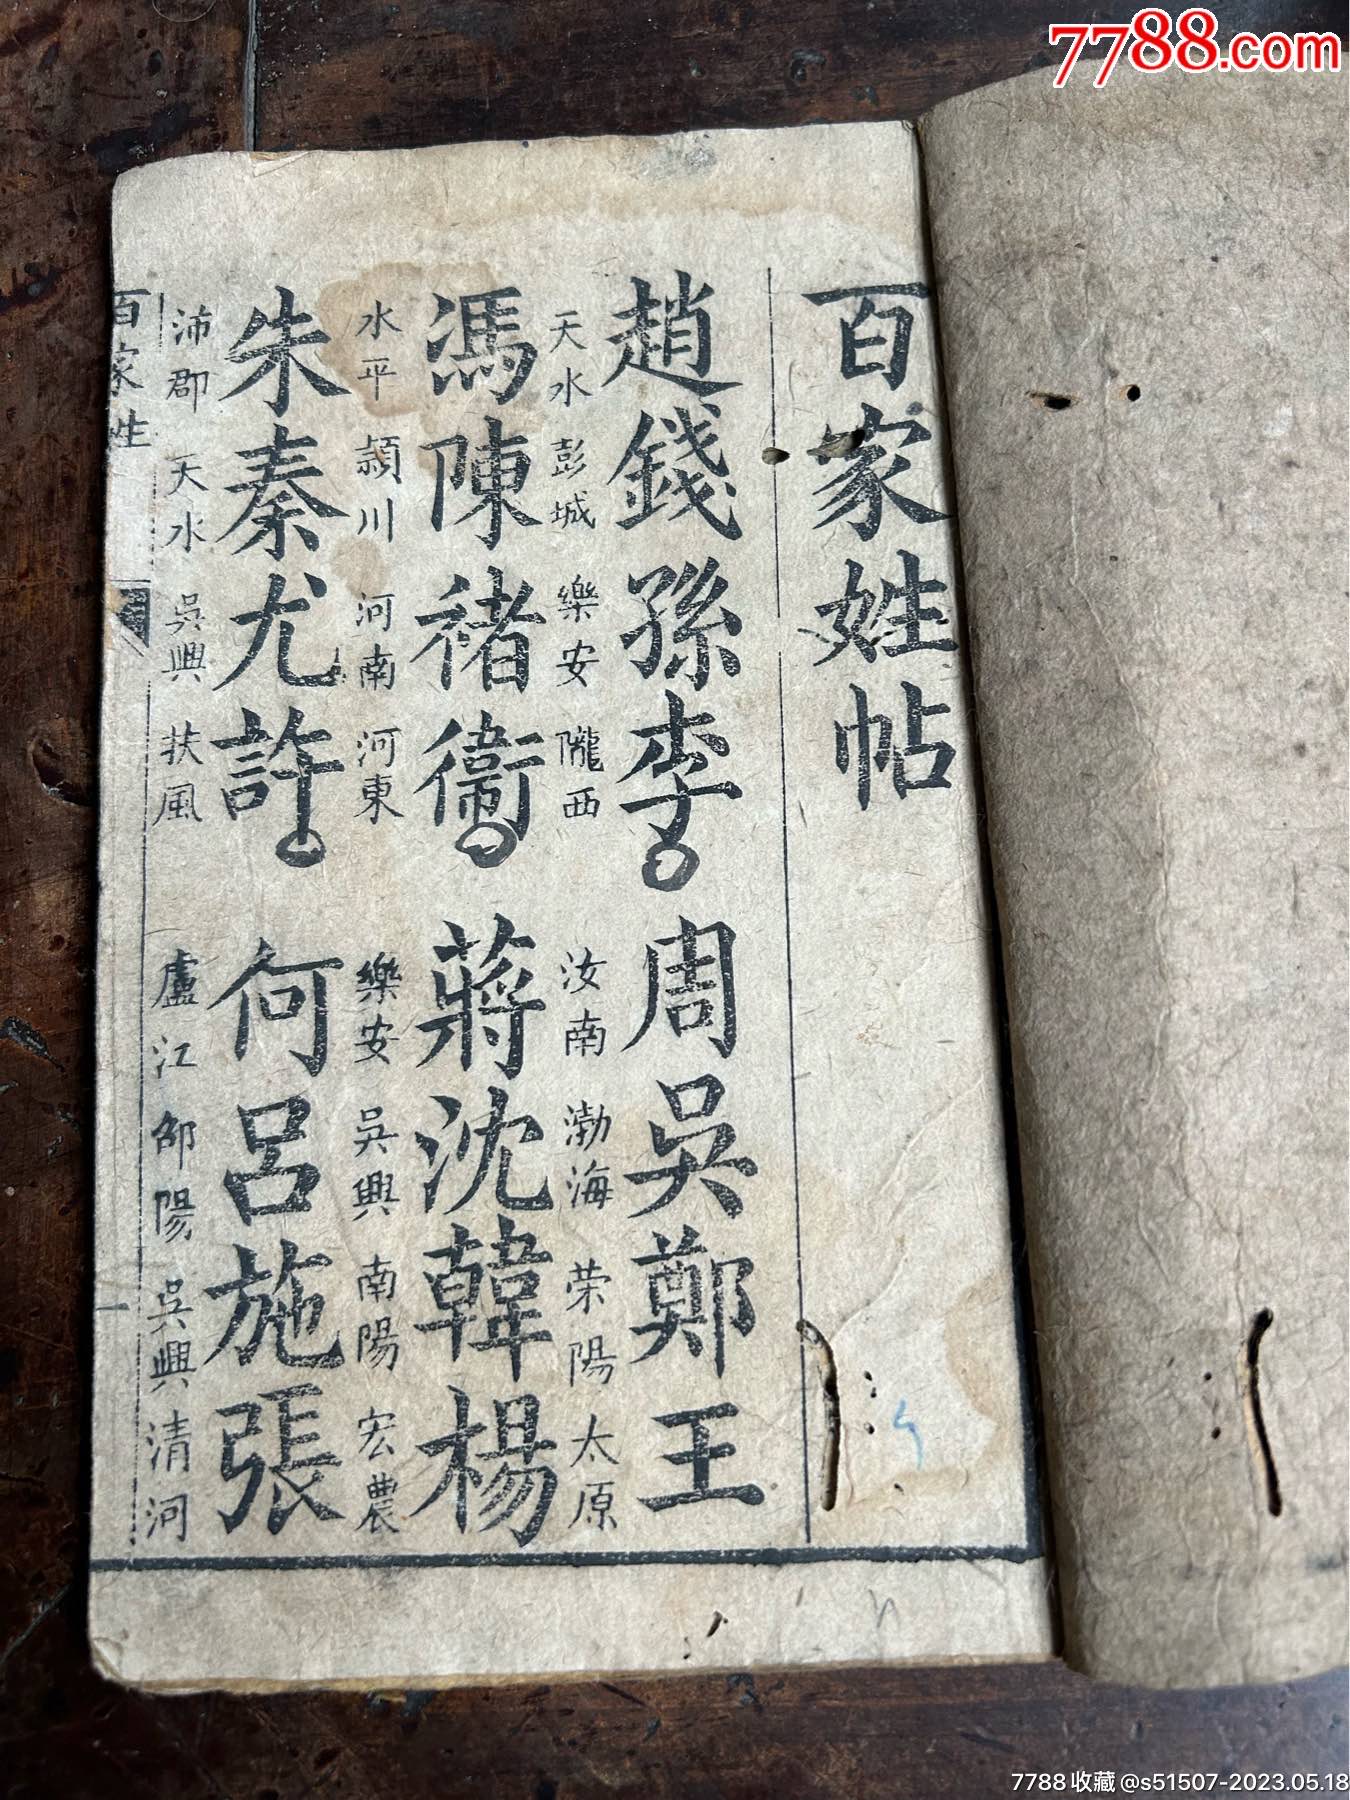 7788.com
百家姓帖
趙錢孫李。周吳鄭王
天水 彭城 樂安 隴西 汝南 渤海 荣陽 太原
馮陳褚衞。蔣沈韓楊
水平 潁川 河南 河東 樂安 吳興 南陽 宏農
朱秦尤許。何呂施張
沛郡 天水 吳興 扶風 盧江 郃陽 吳興 清河
百家姓
一
7788收藏@s51507-2023.05.18